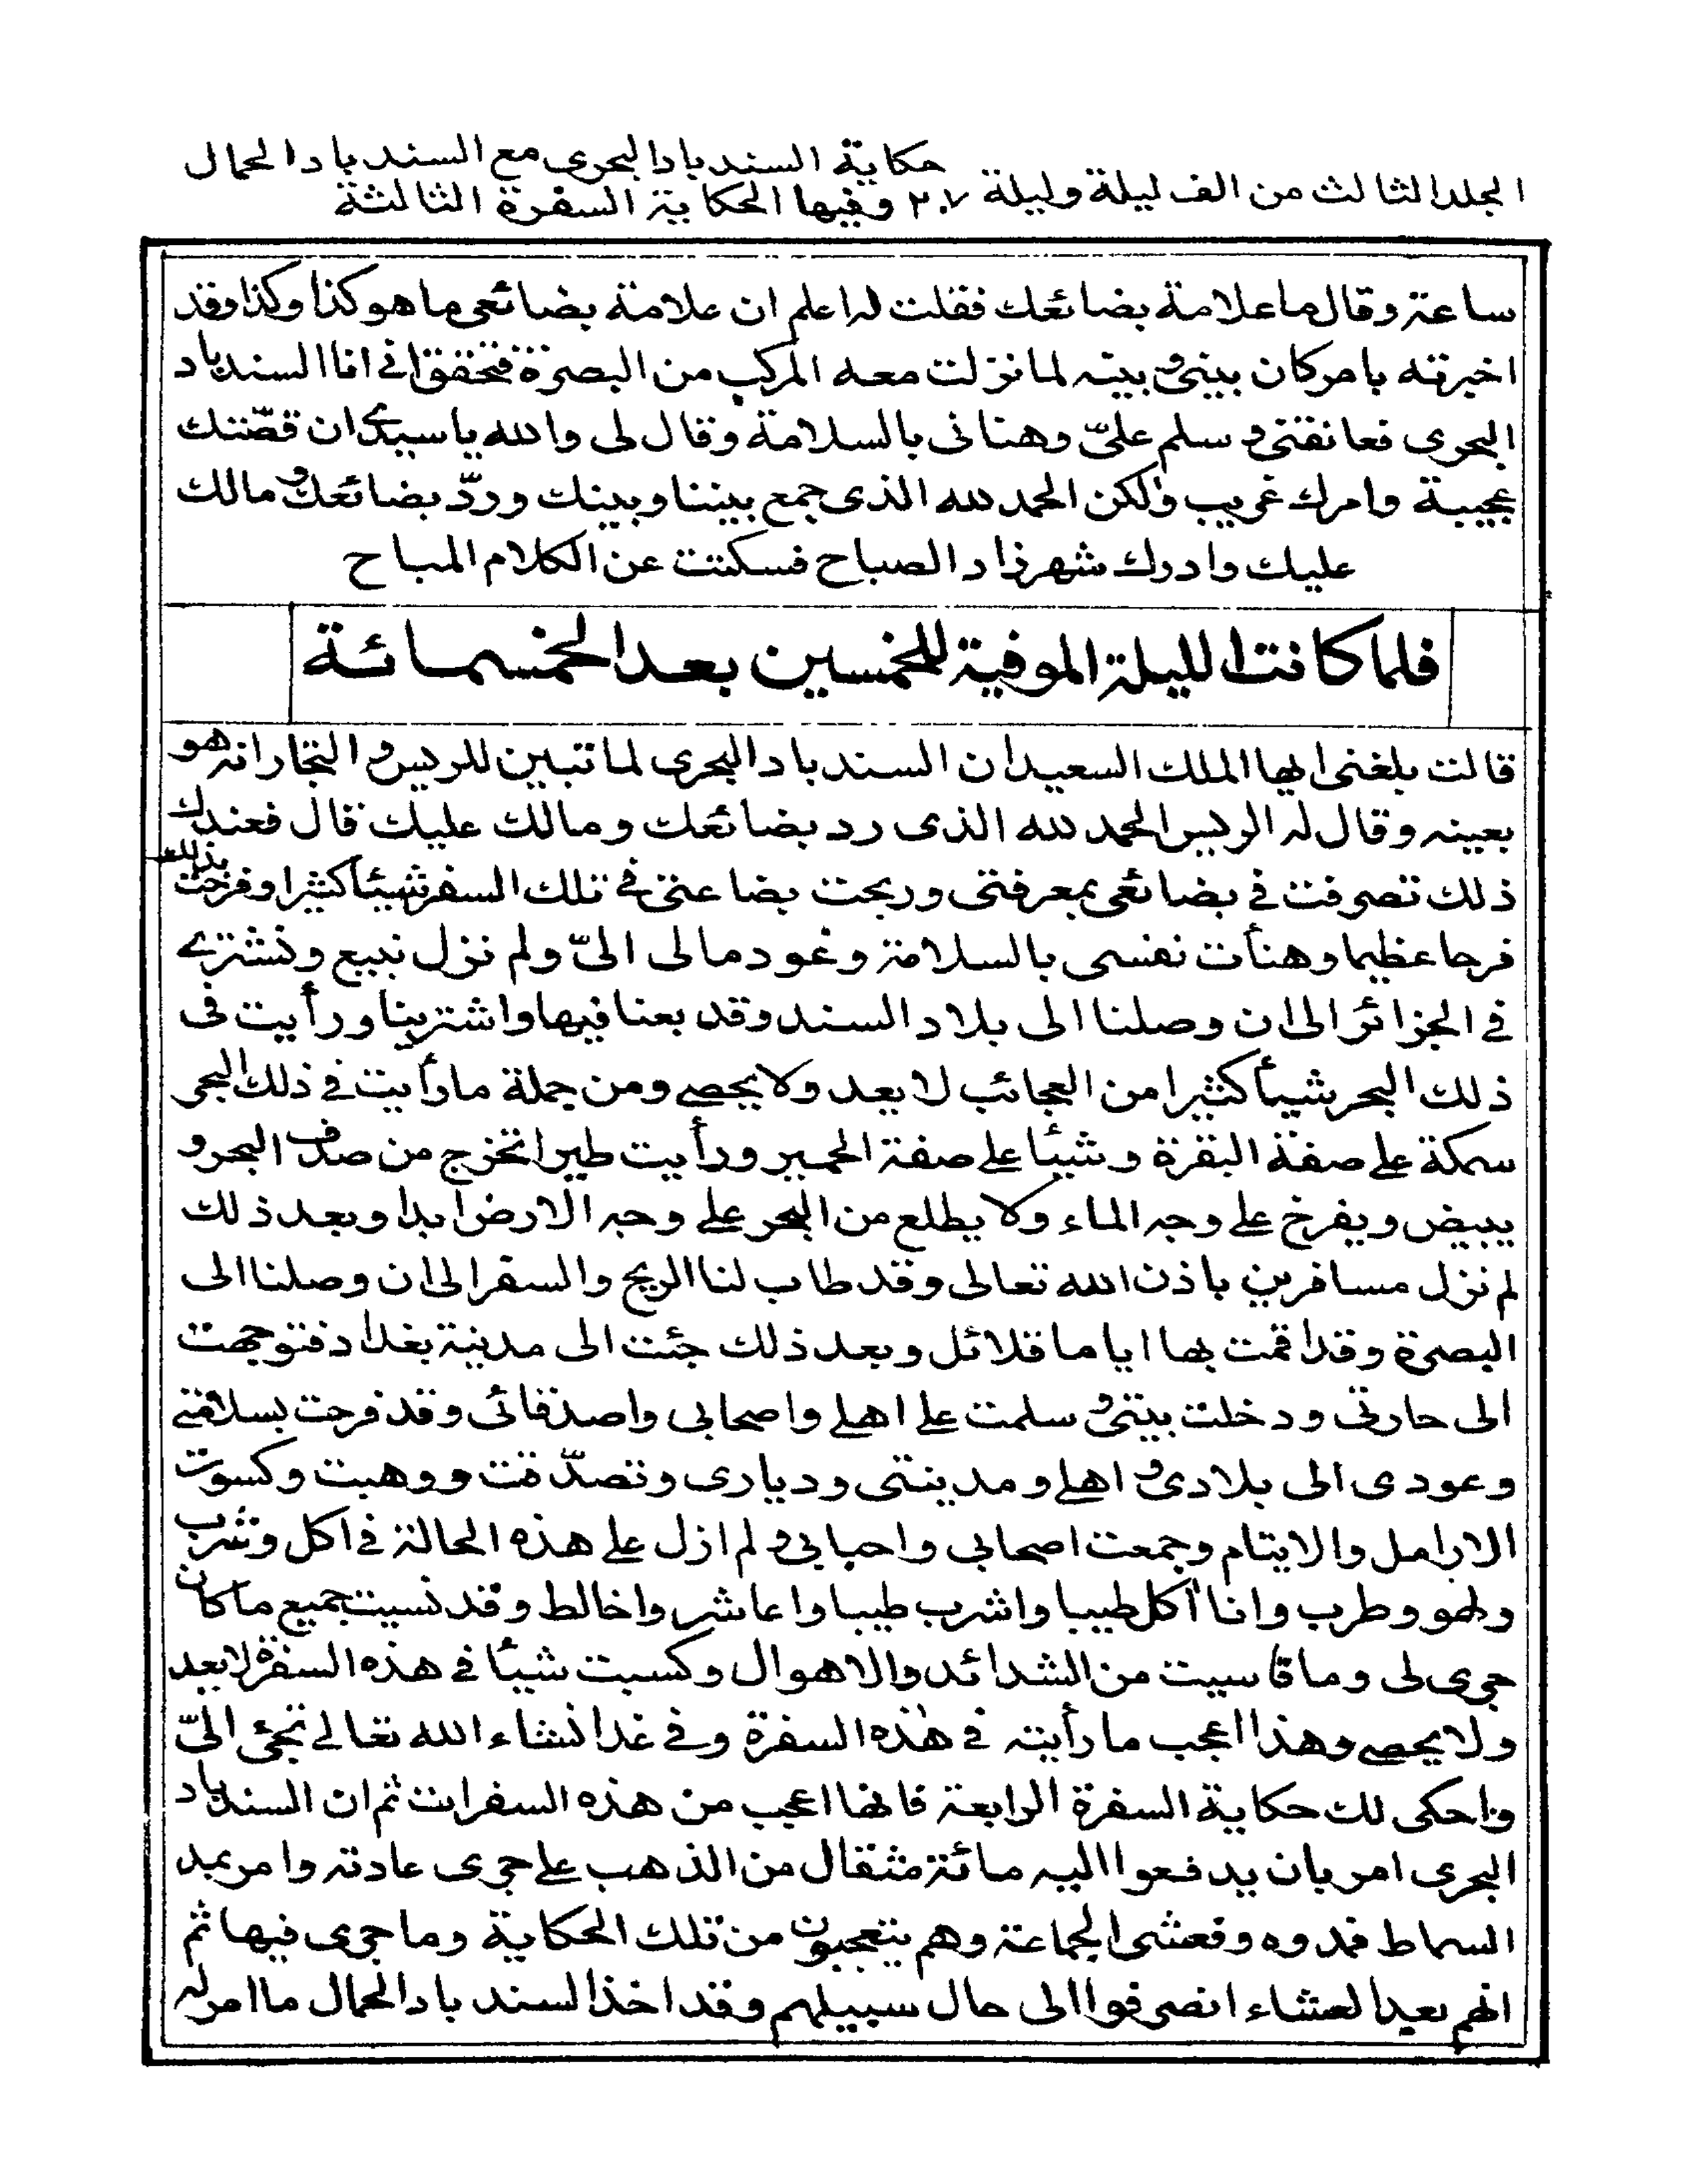 حكاية السندباد البحرى مع السندباد الحمال
المجلد الثالث من الف ليلة وليلة ٢٠٧ وفيها الحكاية السفرة الثالثة
ساعة وقال ما علامة بضائعك فقلت له اعلم ان علامة بضائعى ما هو كذا وكذا وقد
اخبرته بامر كان بينى وبينه لما نزلت معه المركب من البصرة فتحقق انى انا السندباد
البحرى فعانقنى وسلم علىّ وهنانى بالسلامة وقال لى والله يا سيدى ان قصّتك
عجيبة وامرك غريب ولكن الحمد لله الذى جمع بيننا وبينك وردّ بضائعك ومالك
عليك وادرك شهرزاد الصباح فسكتت عن الكلام المباح
فلما كانت الليلة الموفية للخمسين بعد الخمسمائة
قالت بلغنى ايها الملك السعيد ان السندباد البحرى لما تبين للريس والتجار انه هو
بعينه وقال له الريس الحمد لله الذى رد بضائعك ومالك عليك قال فعندك
ذلك تصرفت فى بضائعى بمعرفتى وربحت بضاعتى فى تلك السفر شيئا كثيرا وفرحت بذلك
فرحا عظيما وهنأت نفسى بالسلامة وعود مالى الىّ ولم نزل نبيع ونشترى
فى الجزائر الى ان وصلنا الى بلاد السند وقد بعنا فيها واشترينا ورأيت فى
ذلك البحر شيأ كثيرا من العجائب لا يعد ولا يحصى ومن جملة ما رأيت فى ذلك البحر
سمكة على صفة البقرة وشيئا على صفة الحمير ورأيت طيرا تخرج من صدف البحر و
يبيض ويفرخ على وجه الماء ولا يطلع من البحر على وجه الارض ابدا وبعد ذلك
لم نزل مسافرين باذن الله تعالى وقد طاب لنا الريح والسفر الى ان وصلنا الى
البصرة وقد اقمت بها اياما قلائل وبعد ذلك جئت الى مدينة بغداد فتوجهت
الى حارتى ودخلت بيتى وسلمت على اهلى واصحابى واصدقائى وقد فرحت بسلامتى
وعودى الى بلادى واهلى ومدينتى وديارى وتصدّقت ووهبت وكسوت
الارامل والايتام وجمعت اصحابى واحبابى ولم ازل على هذه الحالة فى اكل وشرب
ولهو وطرب وانا أكل طيبا واشرب طيبا واعاشر واخالط وقد نسيت جميع ما كان
جرى لى وما قاسيت من الشدائد والاهوال وكسبت شيئا فى هذه السفرة لا يعد
ولا يحصى وهذا اعجب ما رأيته فى هذه السفرة وفى غد انشاء الله تعالى تجئ الىّ
واحكى لك حكاية السفرة الرابعة فانها اعجب من هذه السفرات ثم ان السندباد
البحرى امر بان يدفعوا اليه مائة مثقال من الذهب على جرى عادته وامر بمد
السماط فمدوه وتعشى الجماعة وهم يتعجبون من تلك الحكاية وما جرى فيها ثم
انهم بعد العشاء انصرفوا الى حال سبيلهم وقد اخذ السندباد الحمال ما امر له